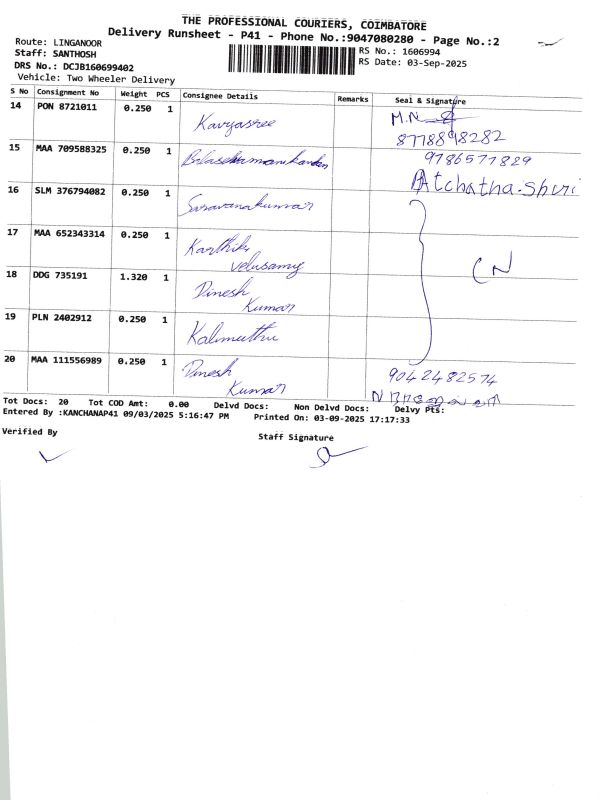 THE PROFESSIONAL COURIERS, COIMBATORE
Delivery Runsheet - P41 - Phone No.:9047080280 - Page No.:2
Route: LINGANOOR
Staff: SANTHOSH
DRS No.: DCJB160699402
Vehicle: Two Wheeler Delivery
RS No.: 1606994
RS Date: 03-Sep-2025
S No Consignment No Weight PCS Consignee Details Remarks Seal & Signature
14 PON 8721011 0.250 1 Kavyasree M.N
8778898282
15 MAA 709588325 0.250 1 Balasubramanikandan 9786577829
Atchatha.Shri
16 SLM 376794082 0.250 1 Saravanakumar
17 MAA 652343314 0.250 1 Karthik Velusamy CN
18 DDG 735191 1.320 1 Dinesh Kumar
19 PLN 2402912 0.250 1 Kalimuthu
20 MAA 111556989 0.250 1 Dinesh Kumar 9042482574
Tot Docs: 20 Tot COD Amt: 0.00 Delvd Docs: Non Delvd Docs: Delvy Pts:
Entered By :KANCHANAP41 09/03/2025 5:16:47 PM Printed On: 03-09-2025 17:17:33
Verified By
Staff Signature